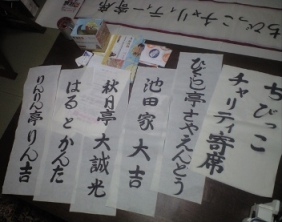 ちびっこチャリティー寄席
ちびっこ
チャリティ寄席
なごみ亭さやえんどう
池田家大吉
秋月亭大誠光
はるとかんた
りんりん亭りん吉